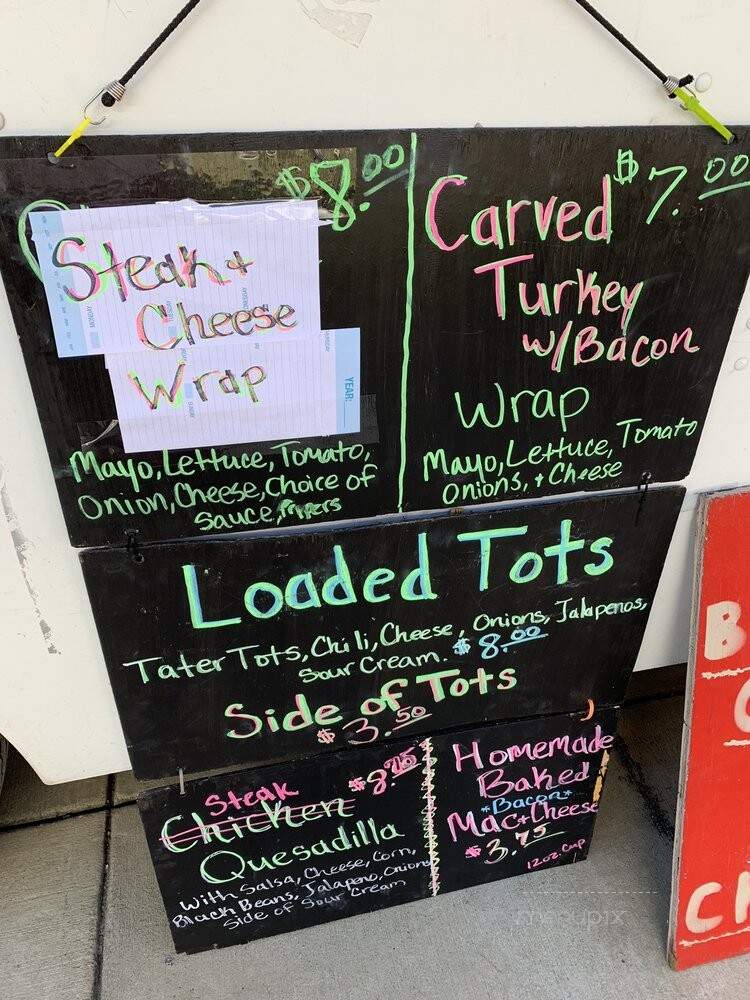 $8.00
Steak +
Cheese
Wrap
YEAR:
Mayo, Lettuce, Tomato,
Onion, Cheese, Choice of
Sauce, Peppers
Carved $7.00
Turkey
w/Bacon
Wrap
Mayo, Lettuce, Tomato
Onions, + Cheese
Loaded Tots
Tater Tots, Chili, Cheese, Onions, Jalapenos,
Sour Cream. $8.00
Side of Tots
$3.50
Steak
Chicken
Quesadilla
With Salsa, Cheese, Corn,
Black Beans, Jalapeno, Onions
Side of Sour Cream
Homemade
Baked
*Bacon*
Mac+Cheese
$3.75
12oz. Cup
B
C